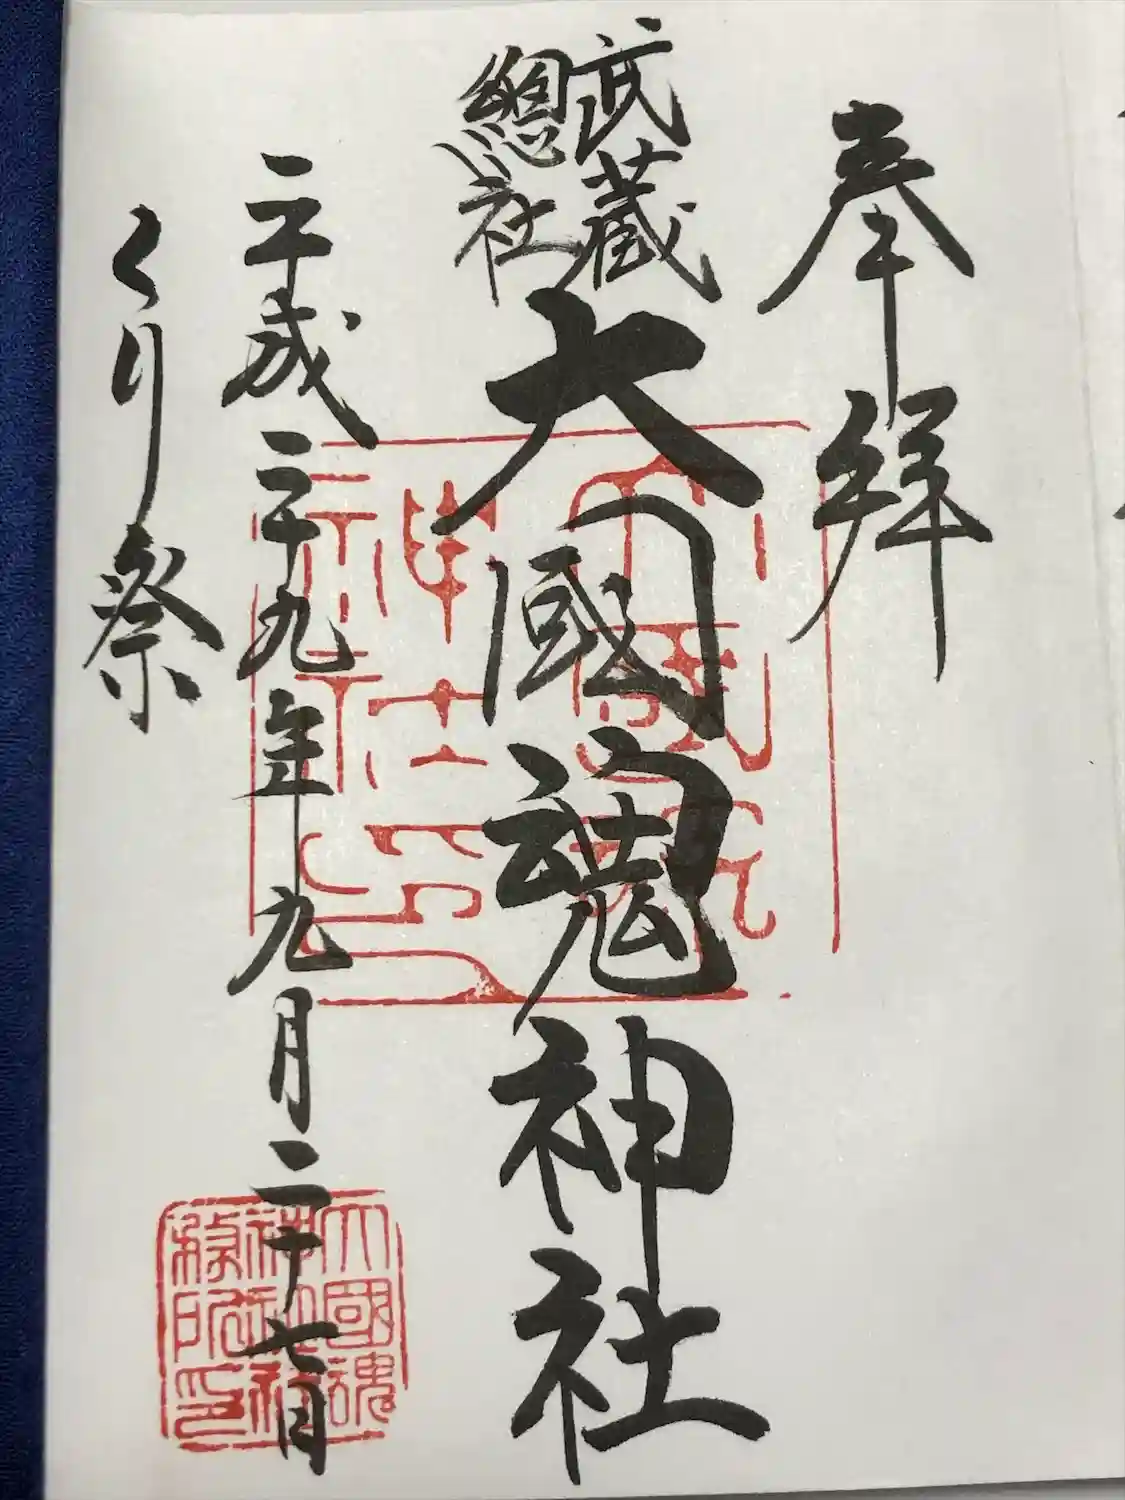 奉拝
武蔵
總社
大國魂神社
平成二十九年九月二十七日
くり祭
大國魂
神社印
大國魂
神社務
務所印